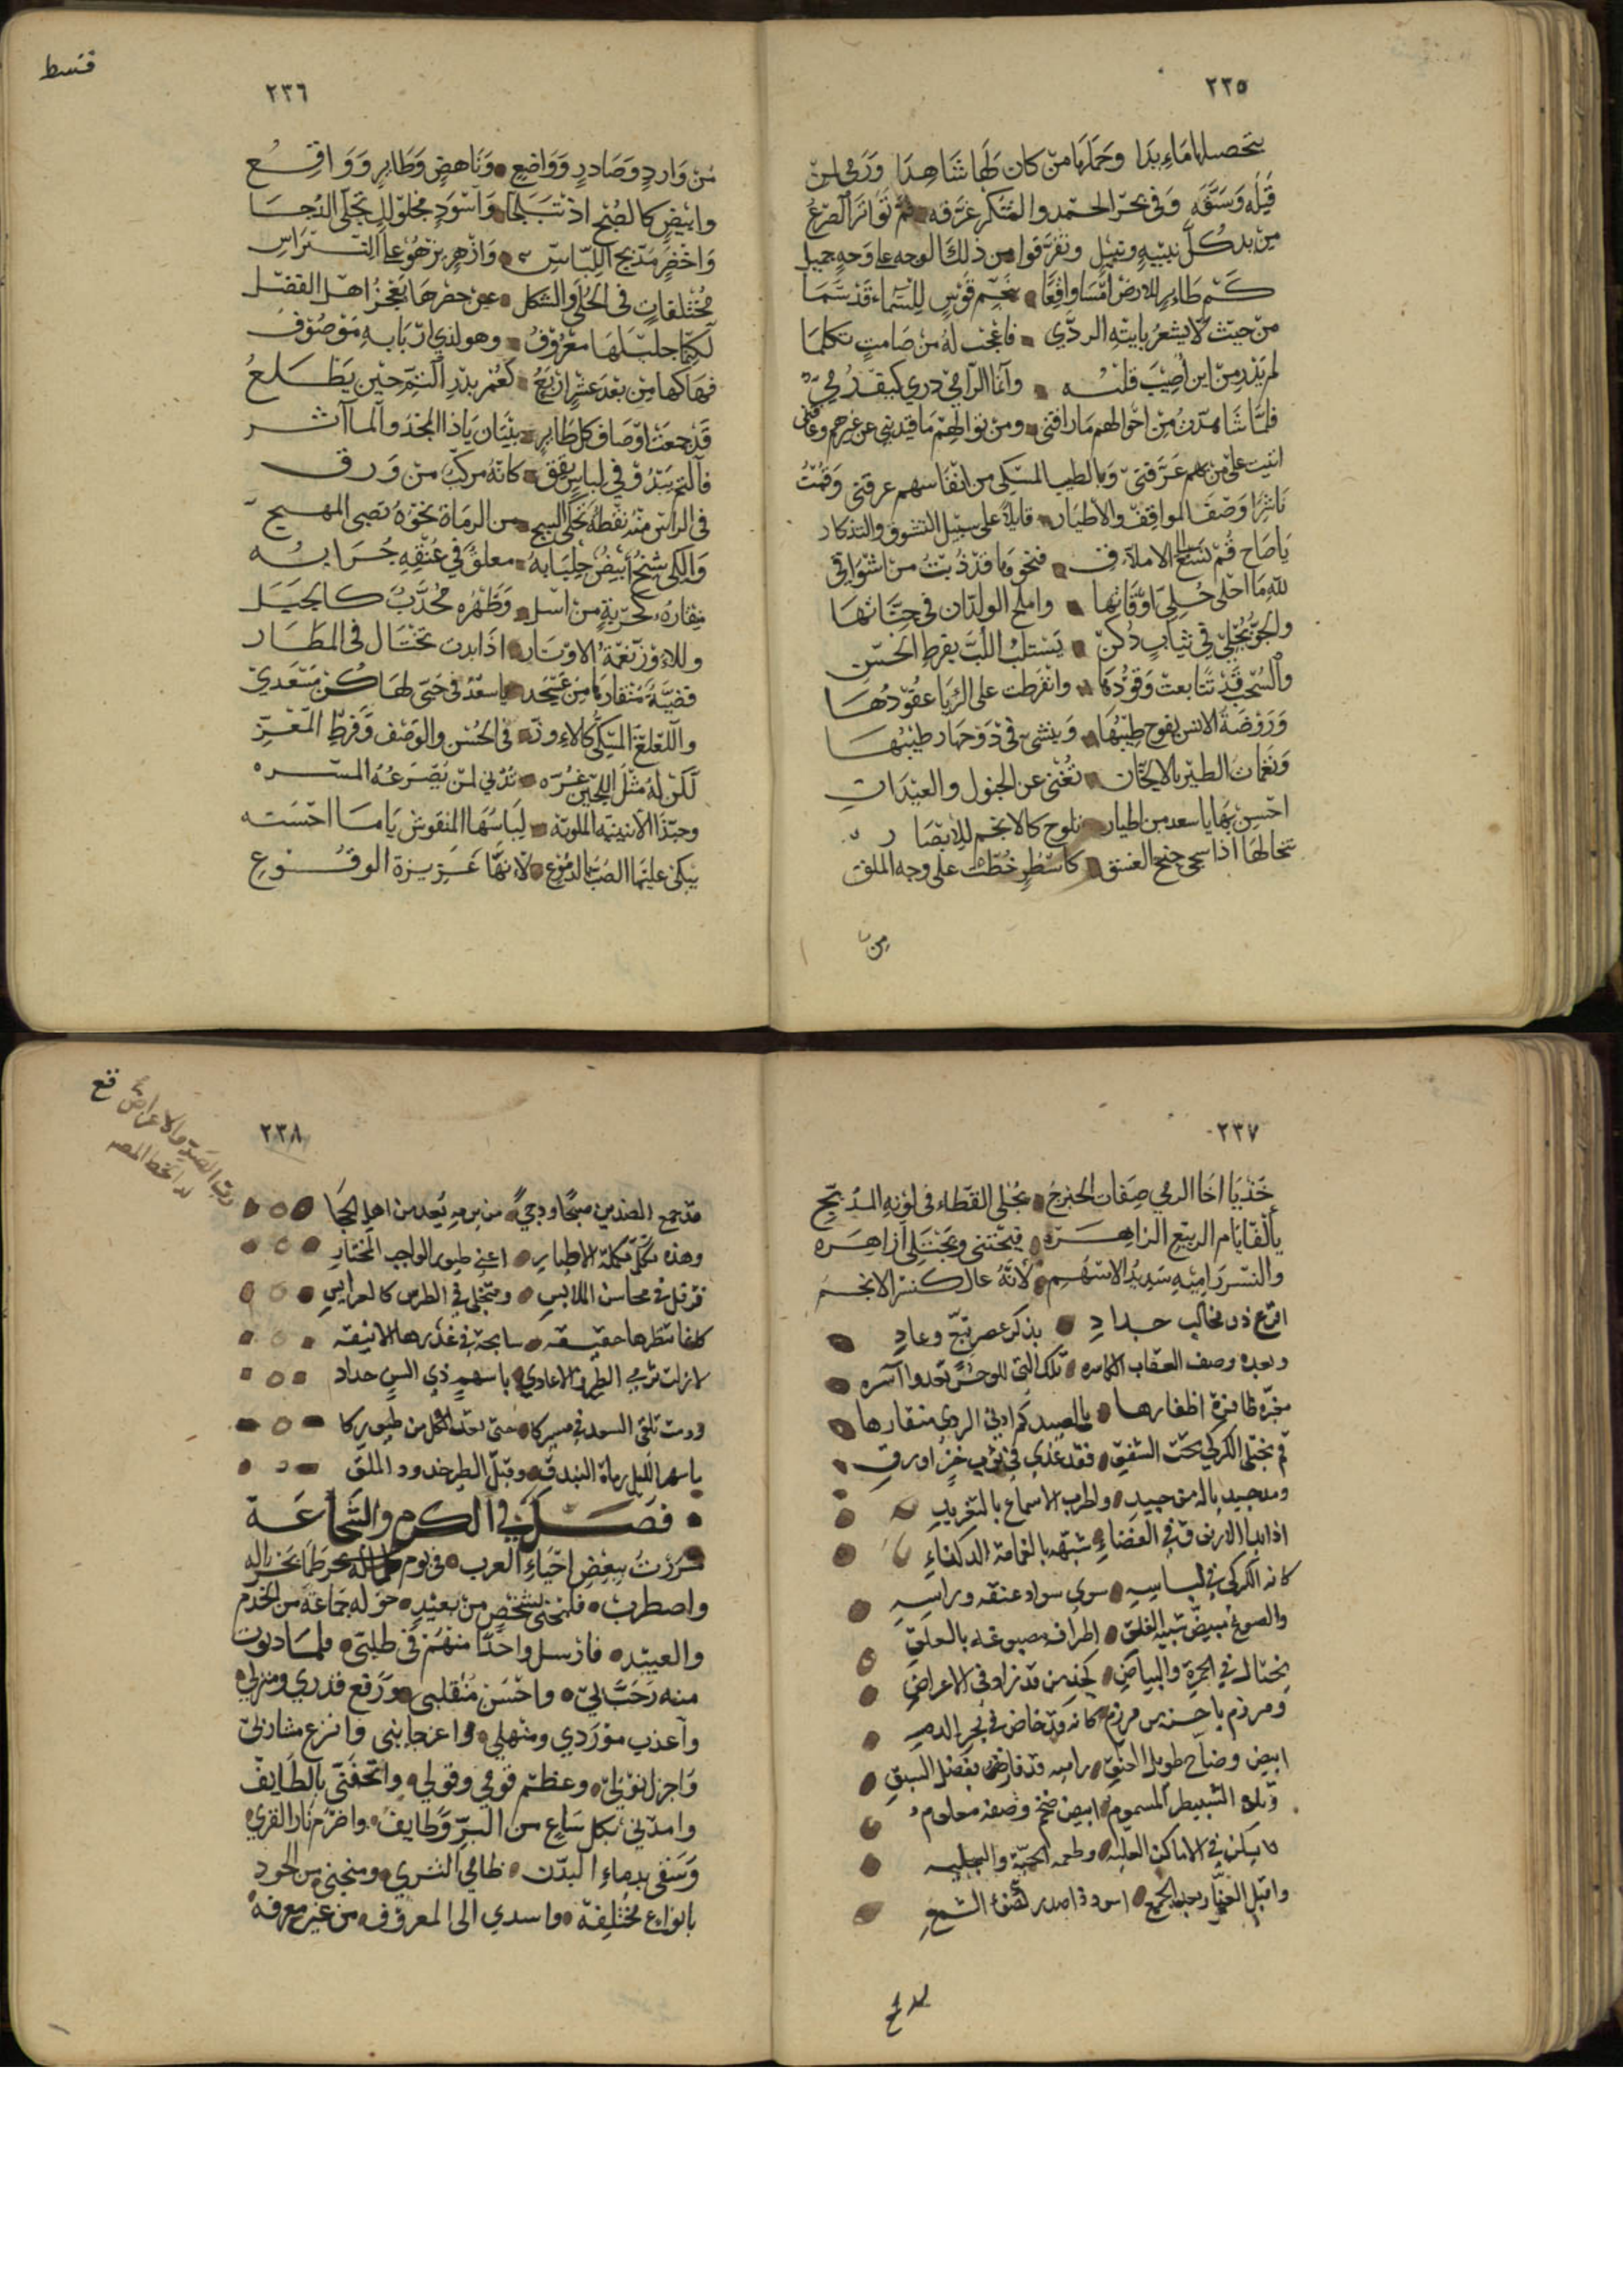 ٢٣٥
يتحصل امآء بدا وحمد ربا من كان لها شاهدا ورمى لمن
قبله وسبقه وفي بحر الحمد والشكر غرقه ثم تواتر الصرع
من بد كل نبيه ونبيل وتفرقوا من ذلك الوجه على وجه جميل
كم طاير للارض امسا واقعا بنجم قوس للسماء قد سما
من حيث لا يشعر يأتيه الردي فاعجب له من صامت تكلما
لم يدر من اين اصيب قلبه وانما الرامي دري كيف رمى
فلما شاهدت من احوالهم ما رافني ومن نوالهم ما قيدني عن غيرهم وعاقني
اثنيت على من بهم عرفني وبالطيب المسكي من انفاسهم عرفني وقمت
ناشرا وصف المواقف والاطيار قايلا على سبيل التشوق والتذكار
يا صاح قم نسع الى الاملاق فنحوها قد ذبت من اشواقي
لله ما احلى حلى اوقاتها واملح الولدان في جناتها
والجو يجلى في ثياب دكن يستلب اللب بفرط الحسن
والسحب قد تتابعت وفودها وانفرطت على الربا عقودها
وروضة الانس يفوح طيبها وينثني في دوحها رطيبها
ونغمات الطير بالالحان تغني عن الجنول والعيدان
احسن بها يا سعد من اطيار تلوح كالانجم للابصار
تخالها اذا سجى جنح الغسق كاسطر خطت على وجه الملق
من
قسط
٢٣٦
من وارد وصادر وواضع وناهض وطاير وواقع
وابيض كالصبح اذ تبلجا واسود محلولك تجلى الدجا
واخضر مدبج اللباس وازهر يزهو على النبراس
مختلفات في الحلى والشكل عن حصرها يعجز اهل الفضل
لكنما جليلها معروف وهو لذي اربابه موصوف
فهاكها من بعد عشر اربع كعمر بدر التم حين يطلع
قد جمعت اوصاف كل طاير بنتان يا ذا المجد والمآثر
فالتم يبدو في لباس يقق كانه مركب من ورق
في الراس منه نقطة تحلى السبج من الرماة نحوه تصبى المهج
والكي شيخ ابيض جلبابه معلق في عنقه جرابه
منقاره كحربة من اسل وظهره محدب كالجبل
وللاوز نغمة الاوتار اذا بدت تختال في المطار
فضية منقارها من عسجد يا سعد في حبي لها كن مسعدي
واللغلغ المسكي كالاوز في الحسن والوصف وفرط العز
لكن له مثل اللجين غره تدني لمن يصرعه المسره
وحبذا الانيسه الملونه لباسها المنقوش يا ما احسنه
يبكي عليها الصب بالدموع لانها عزيزة الوقوع
٢٣٧
خذ يا اخا الرمي صفات الحبرج يجلى القطاء في لونه المدبج
يألف ايام الربيع الزاهره فيجتني ويجتلي ازاهره
والنسر راميه سديد الاسهم لانه عال كنسر الانجم
اقرع ذو مخالب حداد يذكر عصر تبع وعاد
وبعده وصف العقاب الكاسره تلك التي للوحش تغدوا آسره
مغبرة ظافرة اظفارها بالصيد كم ادني الردي منقارها
قم نجتلي الكركي تحت الشفق فقد غدي في ثوب خز ازرق
ومد جيدا يا له من جيد واطرب الاسماع بالتغريد
اذا بدا الازرق في الفضاء شبهه بالغمامة الدكناء
كانه الكركي في لباسه سوى سواد عنقه وراسه
والصوغ مبيض شبيه الفلق اطرافه مصبوغة بالعلق
يختال في الحمرة والبياض كجذ من قد زاد في الاعراض
ومرزم يا حسن من مرزم كانه قد خاض في بحر الدم
ابيض وضاح طويل العنق راميه قد فاز بفضل السبق
وتلوه الشبيطر المسموم ابيض ضخم وصفه معلوم
لا يسكن في الاماكن العليه وطعمه الحية والبليه
واقبل العناز يحدو الجمع اسود ذا صدر كضوء الشمع
٢٣٨
قد جمع الضدين صبحا ودجي من يرمه يعد من اهل الحجا
وهذه تكملة الاطيار اعني طيور الواجب المختار
ترقل في محاسن الملابس وتنجلي في الطرس كالعرايس
كلما تنظرها حقيقه سابحة في غدرها الانيقه
لا زلت ترمي الطير والاعادي باسهم ذي السن حداد
ودمت تلقى السعد في مسيركا حتى تعد الكل من طيوركا
يا سهر الليل رماة البندق وقبل الطير خدود الملق
فصل في الكرم والشجاعة
مررت ببعض احياء العرب في يوم بحره طما بحر اله
واضطرب فلمحني شخص من بعيد حوله جماعة من الخدم
والعبيد فارسل واحدا منهم في طلبي فلما دنوت
منه رحب بي واحسن منقلبي ورفع قدري ومنزلي
واعذب موردي ومنهلي واعزجا بني وانزع مشاربي
واجزل نوبلي وعظم قومي وقولي واتحفني بالطايف
وامدني بكل ساع من البر وطايف واضرم نار القري
وسقى بدماء البدن ظامي الثري ومنحني من الجود
بانواع مختلفة واسدي الى المعروف من غير معرفة